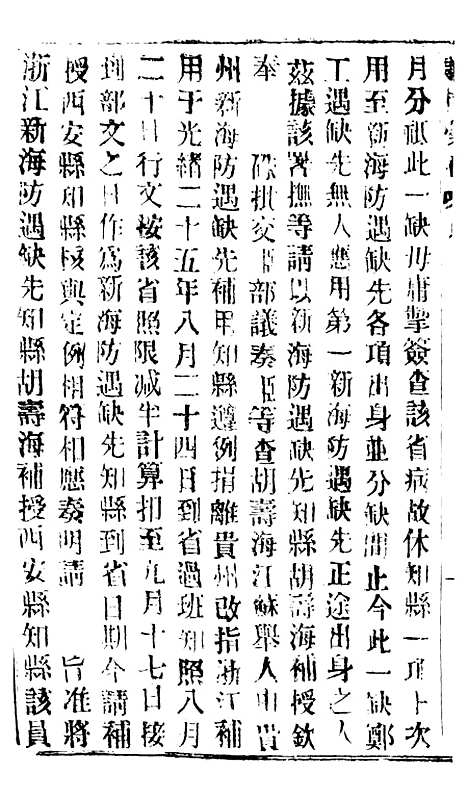 月分祇此一缺毋庸掣簽查該省病故休知縣一項上次
用至新海防遇缺先各項出身並分缺間止今此一缺鄭
工遇缺先無人應用第一新海防遇缺先正途出身之人
茲據該署撫等請以新海防遇缺先知縣胡壽海補授欽
奉 硃批交臣部議奏臣等查胡壽海江蘇舉人由貴
州新海防遇缺先補用知縣遵例捐離貴州改指浙江補
用于光緒二十五年八月二十四日到省過班知照八月
二十日行文按該省照限減半計算扣至九月十七日接
到部文之日作為新海防遇缺先知縣到省日期今請補
授西安縣知縣核與定例相符相應奏明請 旨准將
浙江新海防遇缺先知縣胡壽海補授西安縣知縣該員